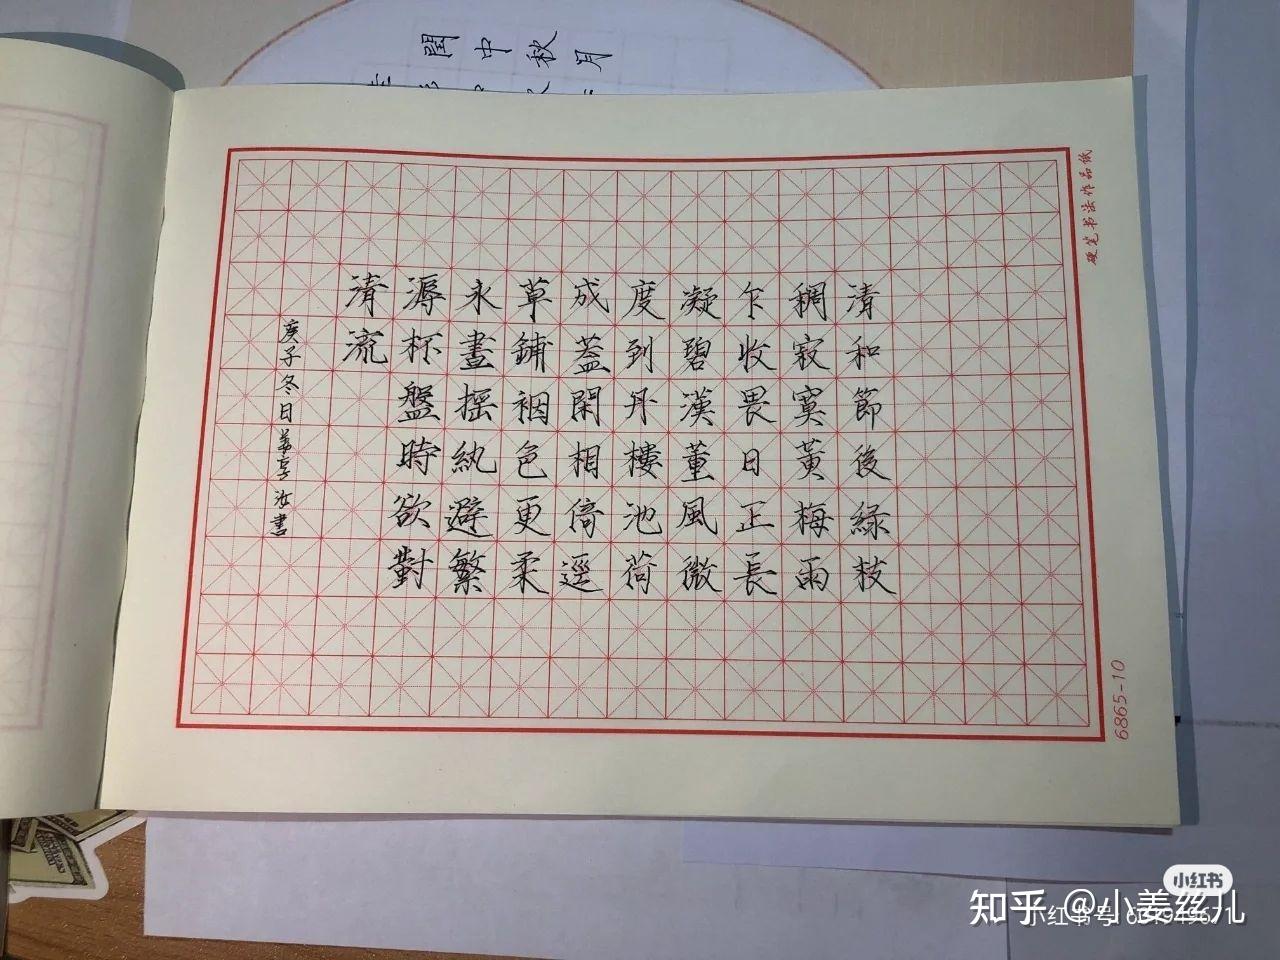 清和節後綠枝
稠寂寞黃梅雨
乍收畏日正長
凝碧漢董風微
度到丹樓池荷
成蓋閑相倚逕
草鋪裀色更柔
永晝搖紈避繁
溽杯盤時欲對
清流
庚子冬日 書
硬笔书法作品纸
6865-10
閏中秋月
小红书
知乎 @小姜丝儿
小红书号: